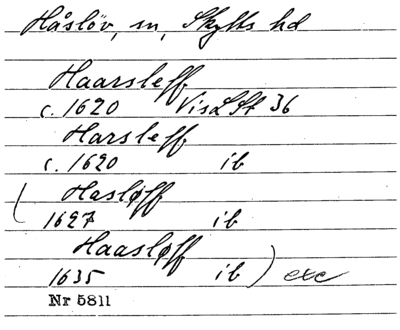 Håslöv, sn, Skytts hd
Haarsleff
c. 1620 VisLSt 36
Harsleff
c. 1620 ib
( Hasløff
1627 ib
Haasløff
1635 ib ) exc
Nr 5811